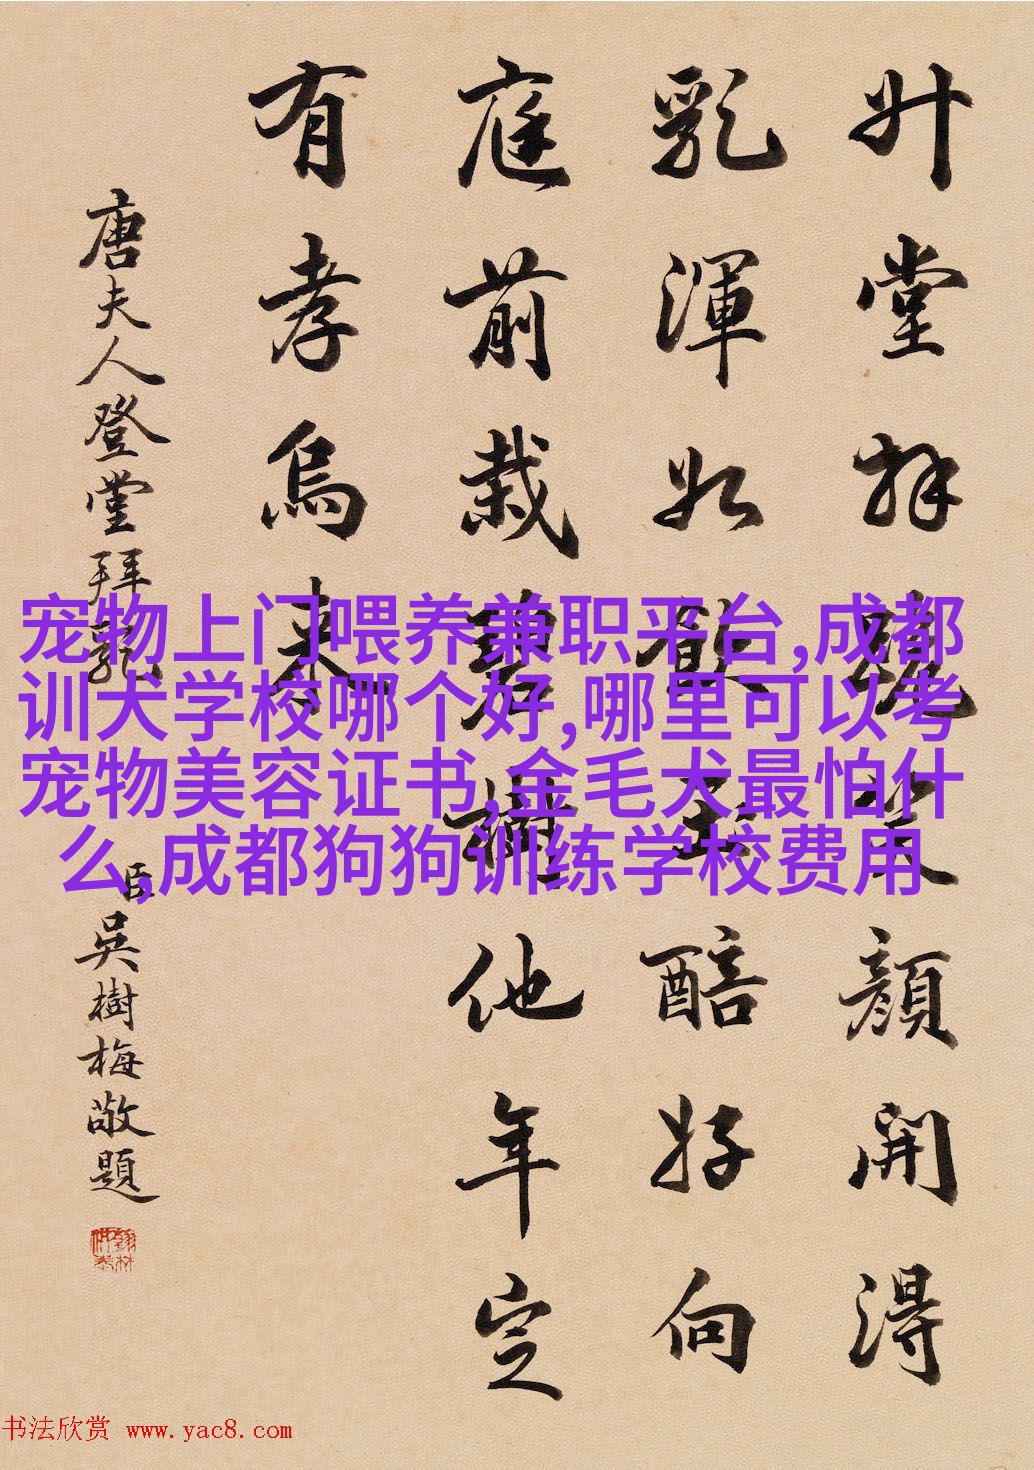 升堂拜笑顏開得
乳渾如飲玉醅好向
庭前栽碧樹他年定
有孝烏来
唐夫人登堂拜乳
臣吳樹梅敬題
宠物上门喂养兼职平台,成都
训犬学校哪个好,哪里可以考
宠物美容证书,金毛犬最怕什
么,成都狗狗训练学校费用
书法欣赏 www.yac8.com